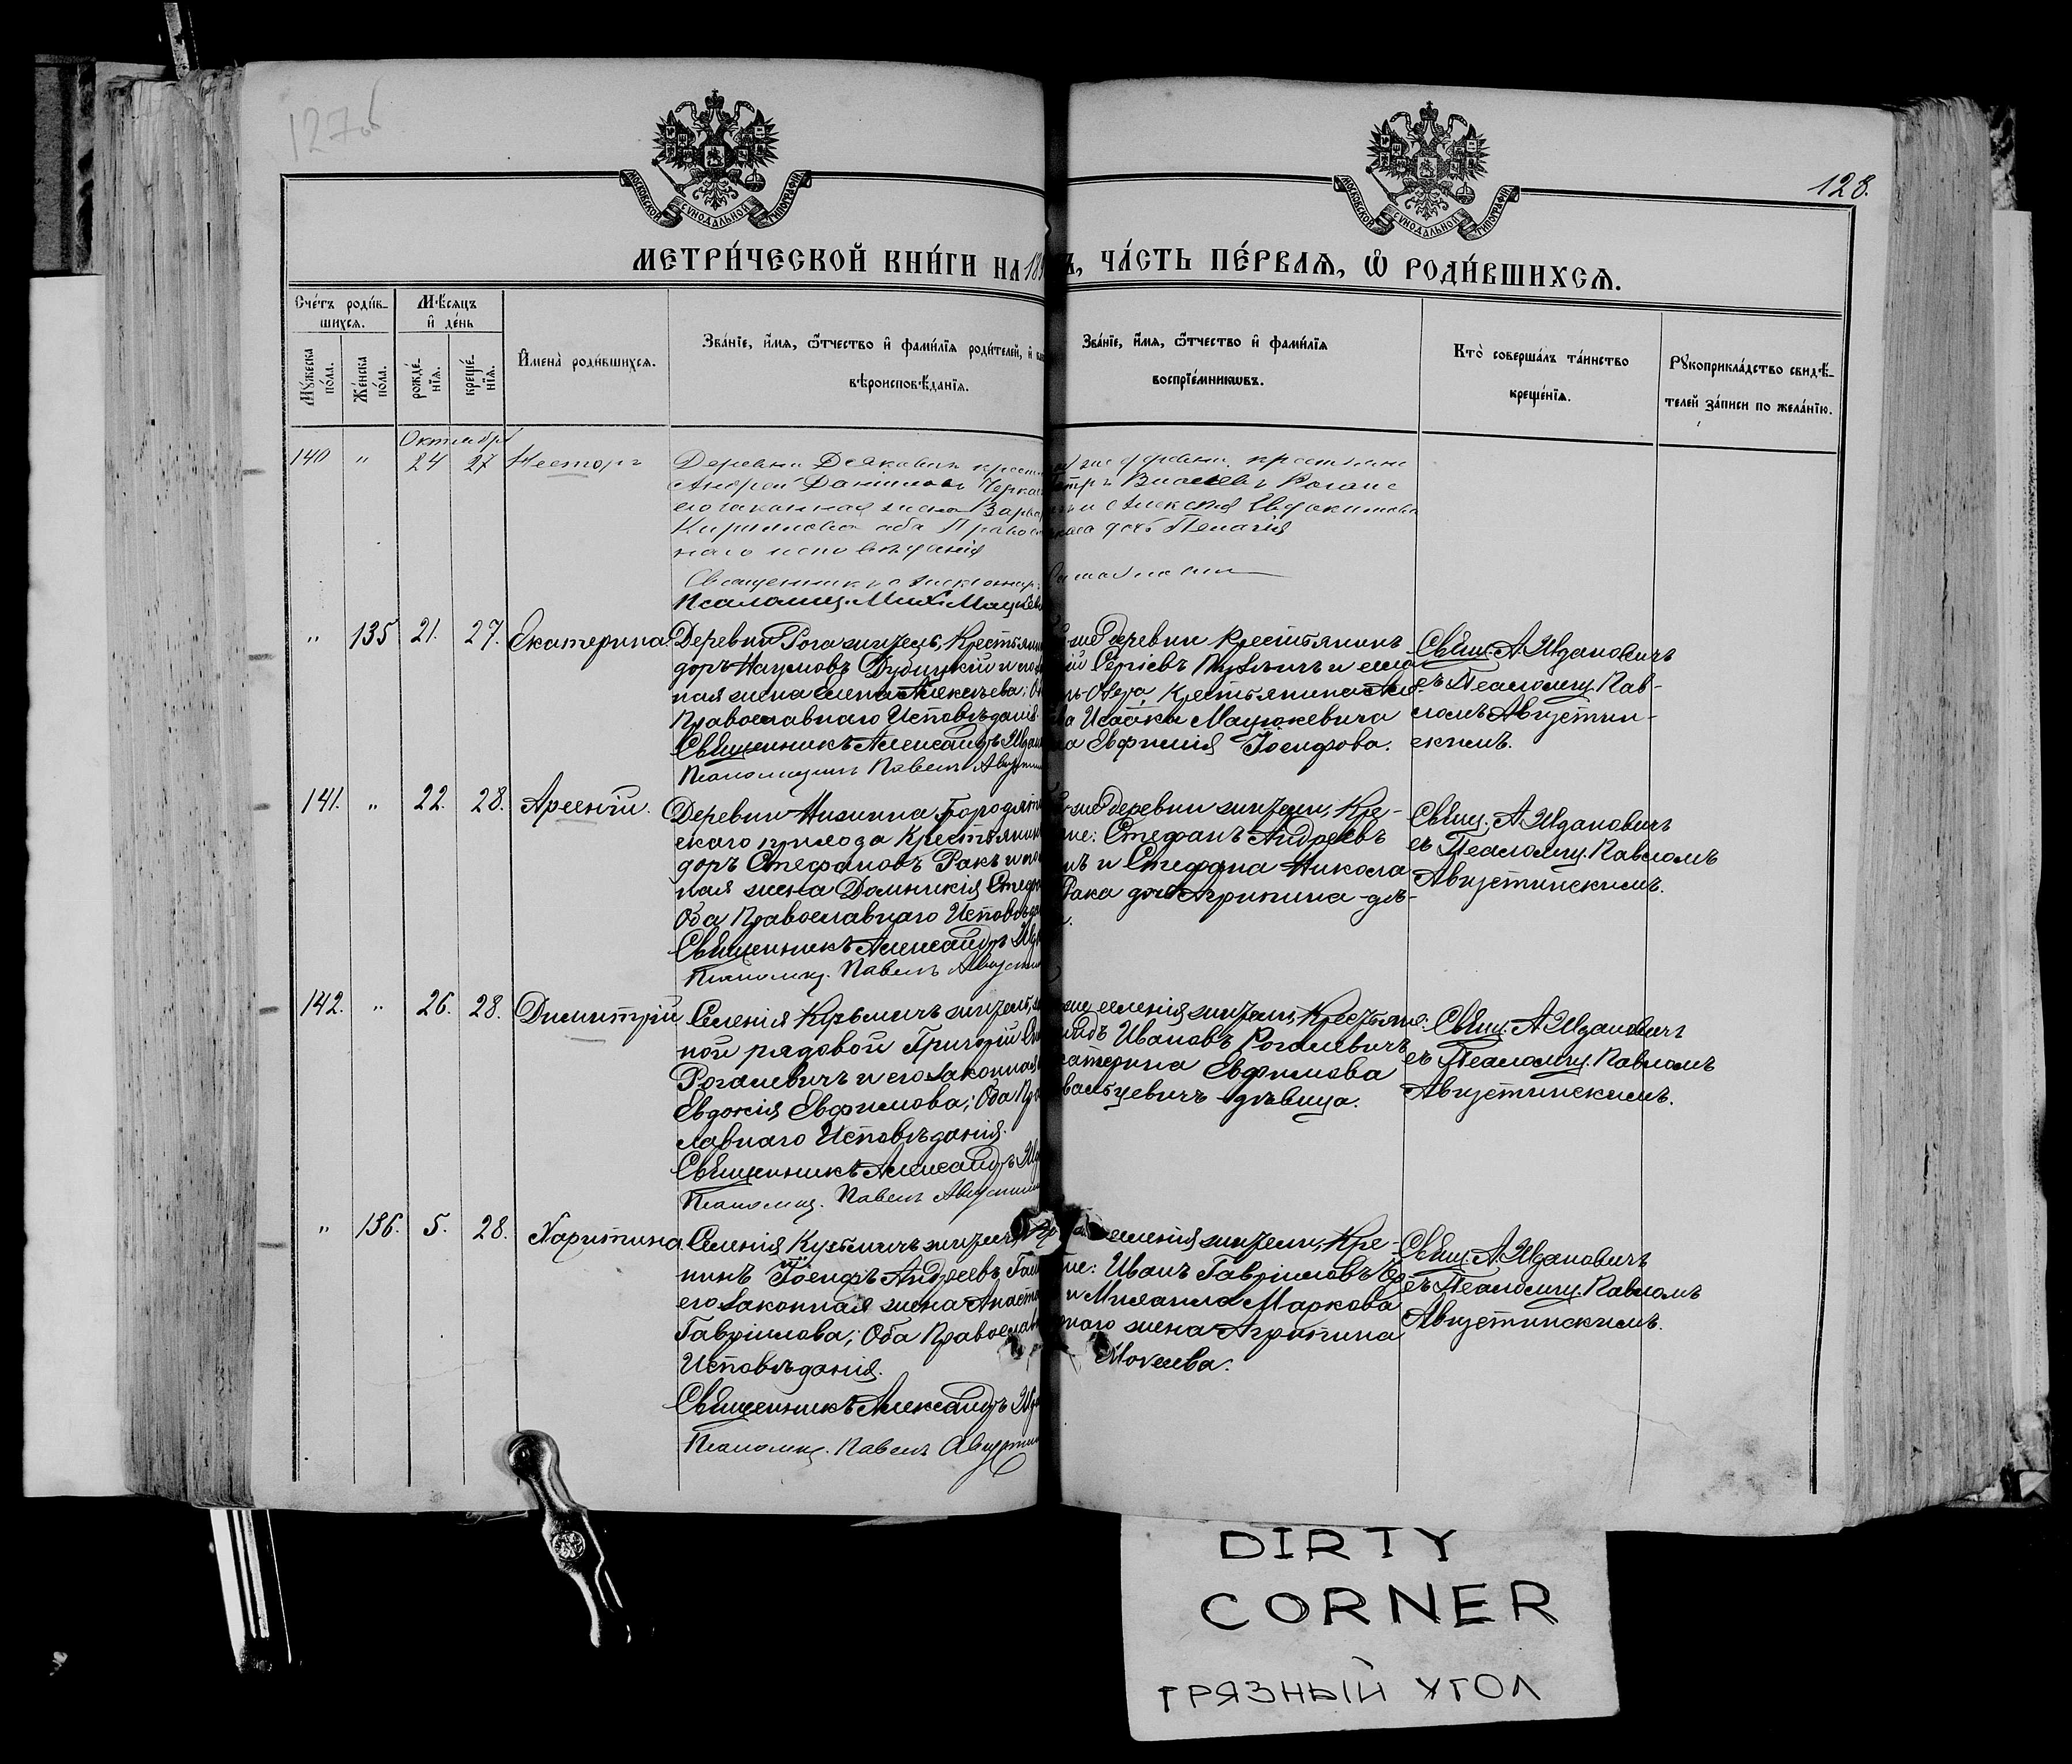 127об
128.
МОСКОВСКОЙ СѴНОДАЛЬНОЙ ТИПОГРАФІИ
МОСКОВСКОЙ СѴНОДАЛЬНОЙ ТИПОГРАФІИ
МЕТРИ́ЧЕСКОЙ КНИ́ГИ НА 18
Ъ, ЧА́СТЬ ПЕ́РВАѦ, Ѡ҆ РОДИ́ВШИХСѦ.
Сче́тъ роди́в-
шихсѧ.
Мꙋ́жеска по́ла.
Же́нска по́ла.
Мѣ́сѧцъ
и҆ де́нь
рожде́-нїѧ.
креще́-нїѧ.
И҆мена̀ роди́вшихсѧ.
Зва́нїе, и҆́мѧ, ѻ҆́тчество и҆ фами́лїѧ роди́телей, и҆
вѣроисповѣ́данїѧ.
Зва́нїе, и҆́мѧ, ѻ҆́тчество и҆ фами́лїѧ
воспрїе́мникωвъ.
Кто̀ соверша́лъ та́инство
креще́нїѧ.
Рꙋкоприкла́дство свидѣ́-
телей за́писи по жела́нїю.
Октября
140 " 24 27 Несторъ
Деревни Деяковичъ крест
Андрей Даниловъ Черка
его законная жена Варва
Кириллова оба Правос
наго исповѣданія
Священникъ
Псаломщ. Мих. Мацкев
же деревни крестьяне
Петръ Власіевъ
и Алексѣя Евдокимова
дочь Пелагія
" 135 21. 27. Екатерина
Деревни Рога жител., Крестьяни
доръ Наумовъ Дубицкій и
ная жена Елена Алексѣева; О
Православнаго Исповѣданія.
Священникъ Александръ Жда
Псаломщикъ Павелъ Августин
же деревни Крестьянинъ
Сергіевъ и села
Озера, Крестьянина
Исаака Мацукевича
Евфимія Іосифова.
Свящ. А. Жданович
съ Псаломщ. Пав-
ломъ Августин-
скимъ.
141. " 22. 28. Арсеній.
Деревни Низина Городят
скаго прихода Крестьянин
доръ Стефановъ Ракъ и
ная жена Домникія Стеф
Оба Православнаго Исповѣда
Священникъ Александръ Жд
Псаломщ. Павелъ Августин
же деревни жители, Кре-
не: Стефанъ Андреевъ
и Стефана Никола
Рака дочь Агрипина - дѣ-
Свящ. А. Жданович
съ Псаломщ. Павломъ
Августинскимъ.
142. " 26. 28. Димитрій
Селенія Кузьмичъ жител.,
ной рядовой Григорій
Рогалевичъ и его законная
Евдокія Евфимова; Оба Пра
славнаго Исповѣданія.
Священникъ Александръ Жд
Псаломщ. Павелъ Августин
же селенія жители, Крестьяне:
Ивановъ Рогалевичъ
Екатерина Евфимова
дѣвица.
Свящ. А. Жданович
съ Псаломщ. Павломъ
Августинскимъ.
" 136. 5. 28. Харитина
Селенія Кузьмичъ жител., Кр
нинъ Іосифъ Андреевъ
его законная жена Анаста
Гавріилова; Оба Православ
Исповѣданія.
Священникъ Александръ Жд
Псаломщ. Павелъ Августин
селенія жители, Кре-
не: Иванъ Гавріиловъ
и Михаила Маркова
жена Агрипина
Моѵсеева.
Свящ. А. Жданович
съ Псаломщ. Павломъ
Августинскимъ.
DIRTY
CORNER
ГРЯЗНЫЙ УГОЛ